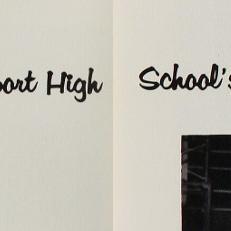 port High School's